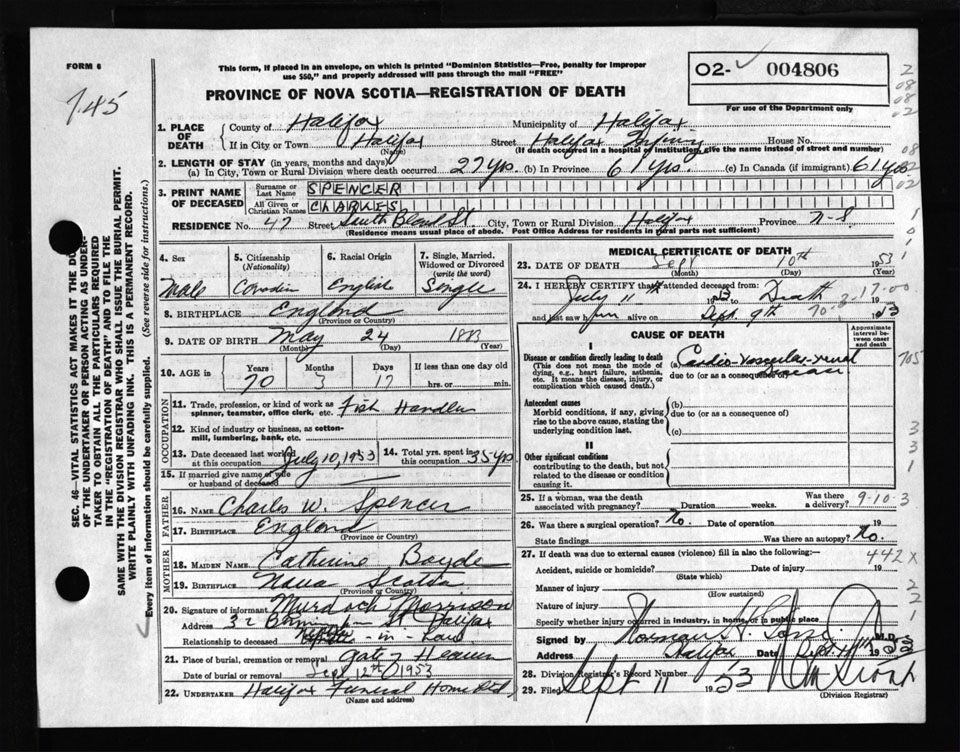 FORM 6
745
This form, if placed in an envelope, on which is printed "Dominion Statistics—Free, penalty for improper
use $50," and properly addressed will pass through the mail "FREE"
02- 004806
For use of the Department only
PROVINCE OF NOVA SCOTIA—REGISTRATION OF DEATH
1. PLACE OF DEATH
County of Halifax Municipality of Halifax
If in City or Town Halifax Street Halifax House No.
(Name) (If death occurred in a hospital or institution, give the name instead of street and number)
2. LENGTH OF STAY (in years, months and days)
(a) In City, Town or Rural Division where death occurred 27 yrs. (b) In Province 61 yrs. (c) In Canada (if immigrant) 61 yrs
3. PRINT NAME OF DECEASED
Surname or Last Name SPENCER
All Given or Christian Names CHARLES
RESIDENCE No. 47 Street South Bland St. City, Town or Rural Division Halifax Province N-S
(Residence means usual place of abode. Post Office Address for residents in rural parts not sufficient)
4. Sex Male
5. Citizenship (Nationality) Canadian
6. Racial Origin English
7. Single, Married, Widowed or Divorced (write the word) Single
8. BIRTHPLACE England
(Province or Country)
9. DATE OF BIRTH May 24
(Month) (Day) (Year)
10. AGE in Years Months Days If less than one day old
70 3 17 hrs. or min.
OCCUPATION
11. Trade, profession, or kind of work as spinner, teamster, office clerk, etc. Fish Handler
12. Kind of industry or business, as cotton-mill, lumbering, bank, etc.
13. Date deceased last worked at this occupation July 10, 1953
14. Total yrs. spent in this occupation 35 yrs
15. If married give name of wife or husband of deceased
FATHER
16. NAME Charles W. Spencer
17. BIRTHPLACE England
(Province or Country)
MOTHER
18. MAIDEN NAME Catherine Boyde
19. BIRTHPLACE Nova Scotia
(Province or Country)
20. Signature of informant Murdoch Morrison
Address 32 Birmingham St Halifax
Relationship to deceased -in-law
21. Place of burial, cremation or removal Gate of Heaven
Date of burial or removal Sept 12th 1953
22. UNDERTAKER Halifax Funeral Home Ltd.
(Name and address)
MEDICAL CERTIFICATE OF DEATH
23. DATE OF DEATH Sept 10th 1953
(Month) (Day) (Year)
24. I HEREBY CERTIFY that I attended deceased from:
July 11th 1953 to Death 19
and last saw him alive on Sept. 9th 1953
CAUSE OF DEATH
Approximate interval between onset and death
I
Disease or condition directly leading to death
(This does not mean the mode of dying, e.g., heart failure, asthenia, etc. It means the disease, injury, or complication which caused death.)
(a) Cardio-vascular-renal disease
due to (or as a consequence of)
Antecedent causes
Morbid conditions, if any, giving rise to the above cause, stating the underlying condition last.
(b)
due to (or as a consequence of)
(c)
II
Other significant conditions
contributing to the death, but not related to the disease or condition causing it.
25. If a woman, was the death associated with pregnancy? Duration weeks. Was there a delivery?
9-10-3
26. Was there a surgical operation? No. Date of operation 19
State findings Was there an autopsy? No.
27. If death was due to external causes (violence) fill in also the following:—
442X
Accident, suicide or homicide? Date of injury 19
(State which)
Manner of injury
(How sustained)
Nature of injury
Specify whether injured in industry, in home, or in public place
Signed by Norman M.D.
Address Halifax Date Sept. 11 1953
28. Division Registrar's Record Number
29. Filed Sept 11 1953
(Division Registrar)
SEC. 46—VITAL STATISTICS ACT MAKES IT THE DUTY
OF THE UNDERTAKER OR PERSON ACTING AS UNDER-
TAKER TO OBTAIN ALL THE PARTICULARS REQUIRED
IN THE "REGISTRATION OF DEATH" AND TO FILE THE
SAME WITH THE DIVISION REGISTRAR WHO SHALL ISSUE THE BURIAL PERMIT.
WRITE PLAINLY WITH UNFADING INK. THIS IS A PERMANENT RECORD.
Every item of information should be carefully supplied. (See reverse side for instructions.)